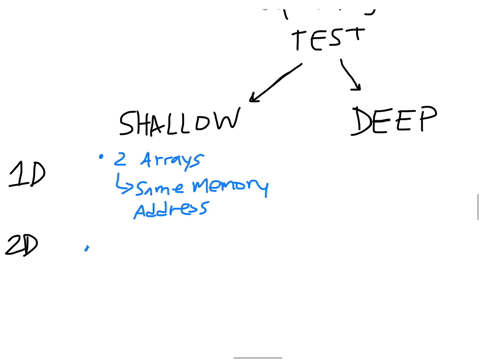 TEST
SHALLOW DEEP
1D
• 2 Arrays
↳ Same Memory
Address
2D •